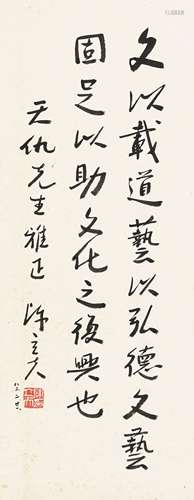 文以載道藝以弘德文藝
固足以助文化之復興也
天仇先生雅正 陳立夫